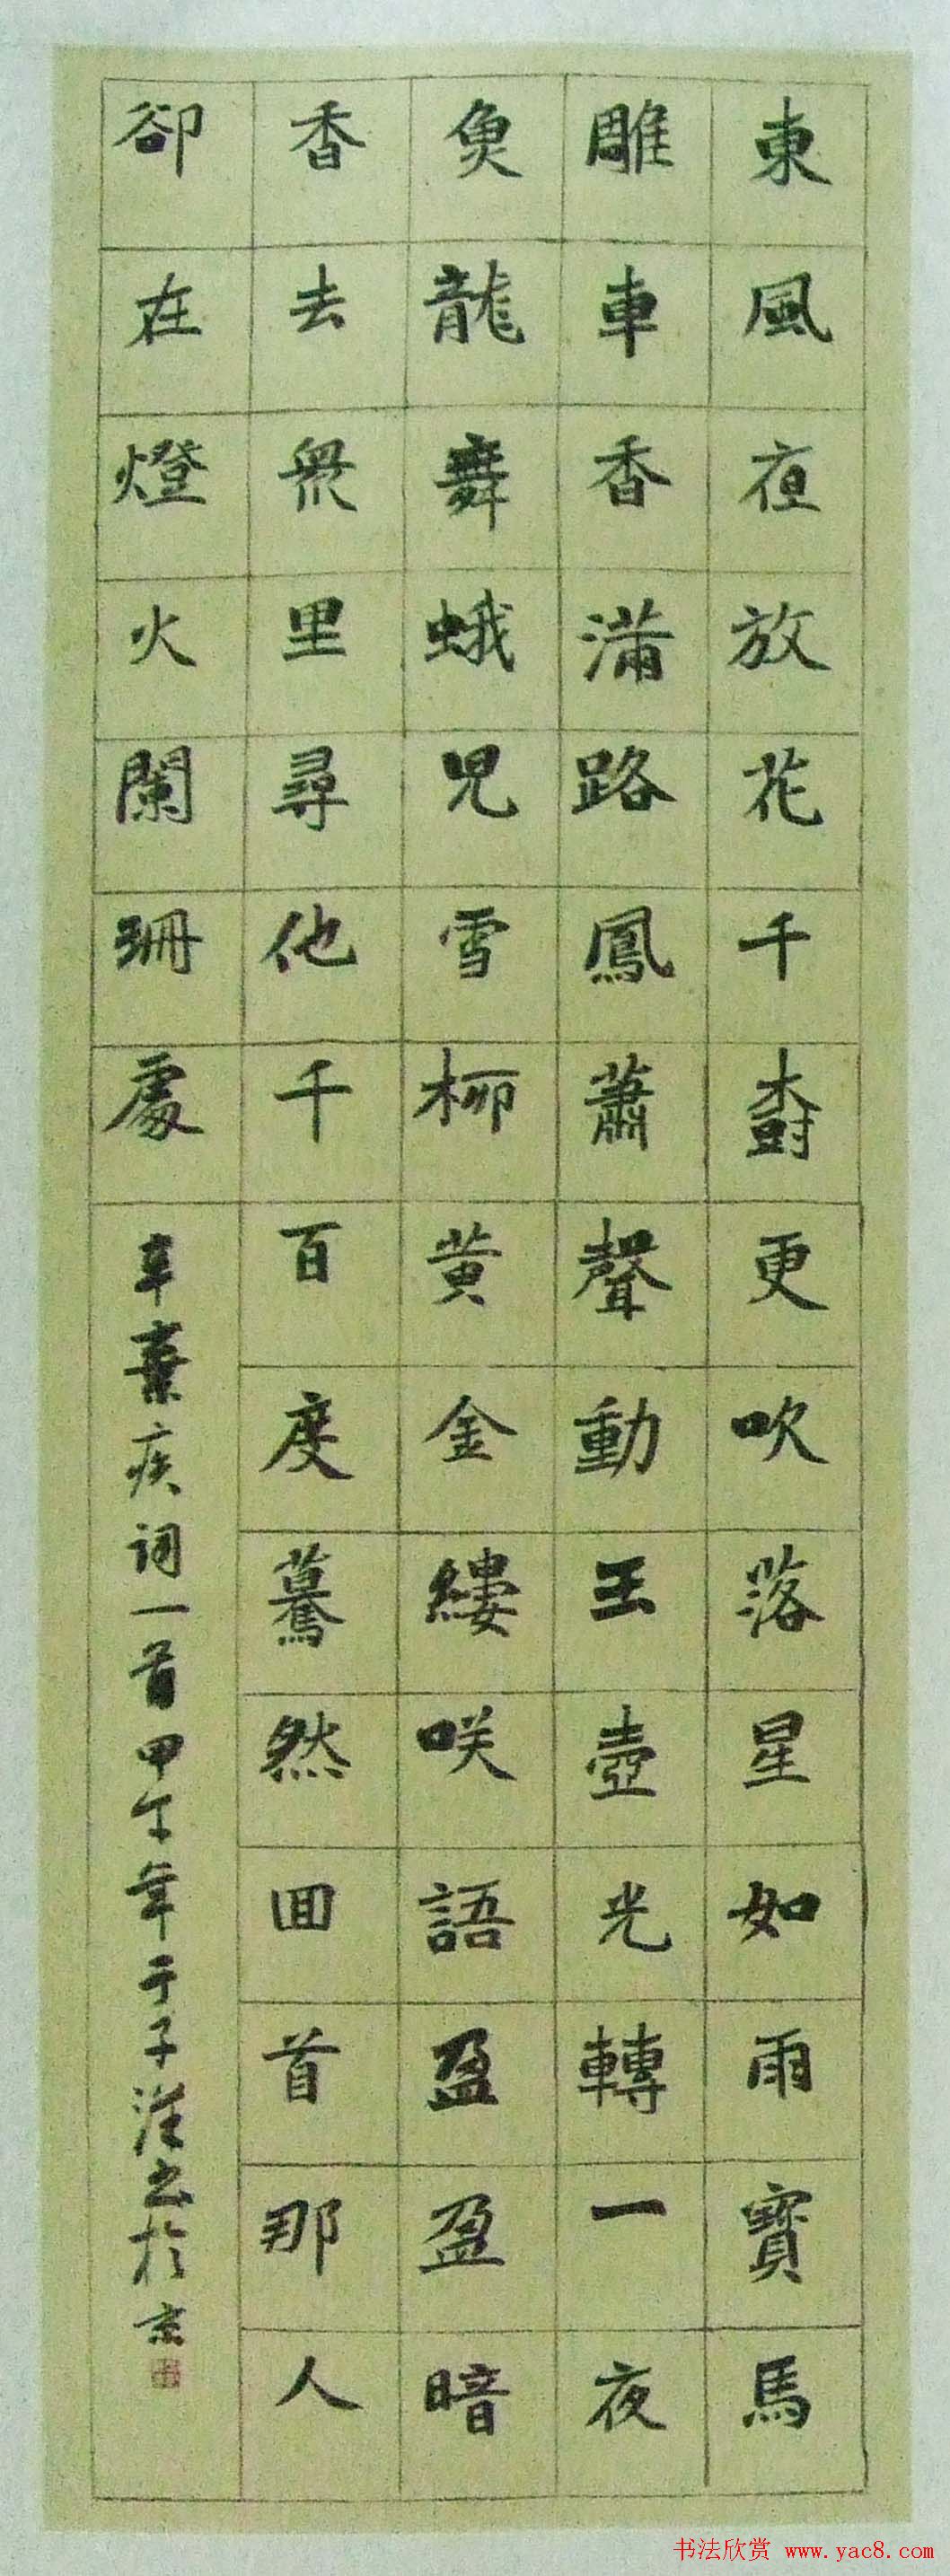 東風夜放花千樹更吹落星如雨寶馬
雕車香滿路鳳蕭聲動玉壺光轉一夜
魚龍舞蛾兒雪柳黃金縷咲語盈盈暗
香去衆里尋他千百度驀然回首那人
卻在燈火闌珊處
辛棄疾詞一首甲午年于子书於京
书法欣赏 www.yac8.com